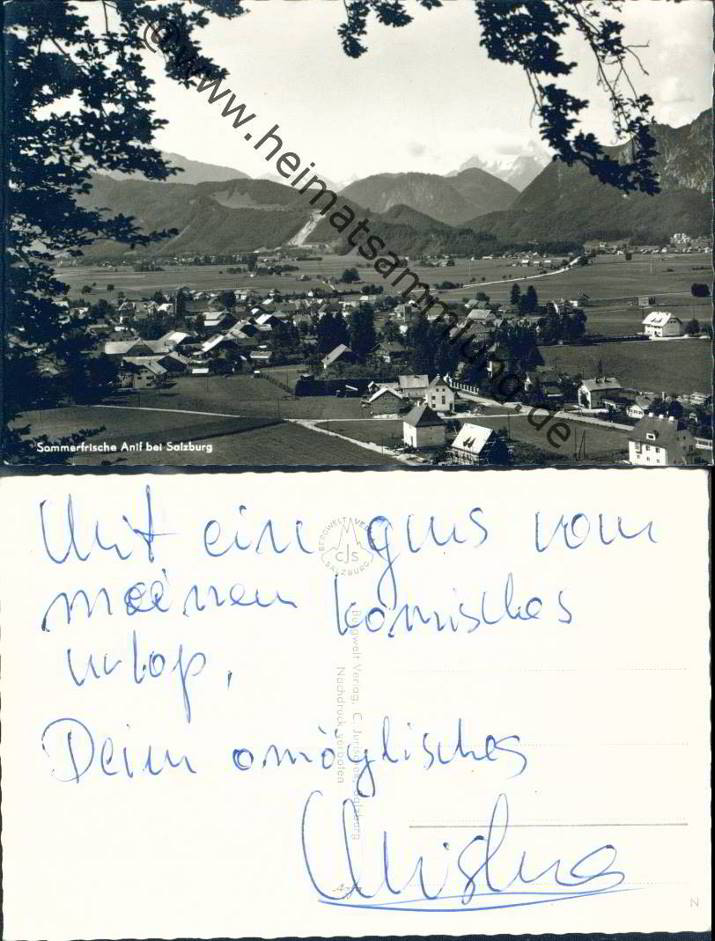 © www.heimatsammlung.de
Sommerfrische Anif bei Salzburg
Mit ein grus vom
meinen komisches
urlop,
Dein omöglisches
Christine
BERGWELT VERLAG
CJS
SALZBURG
Bergwelt Verlag, C. Jurischek, Salzburg
Nachdruck verboten
N